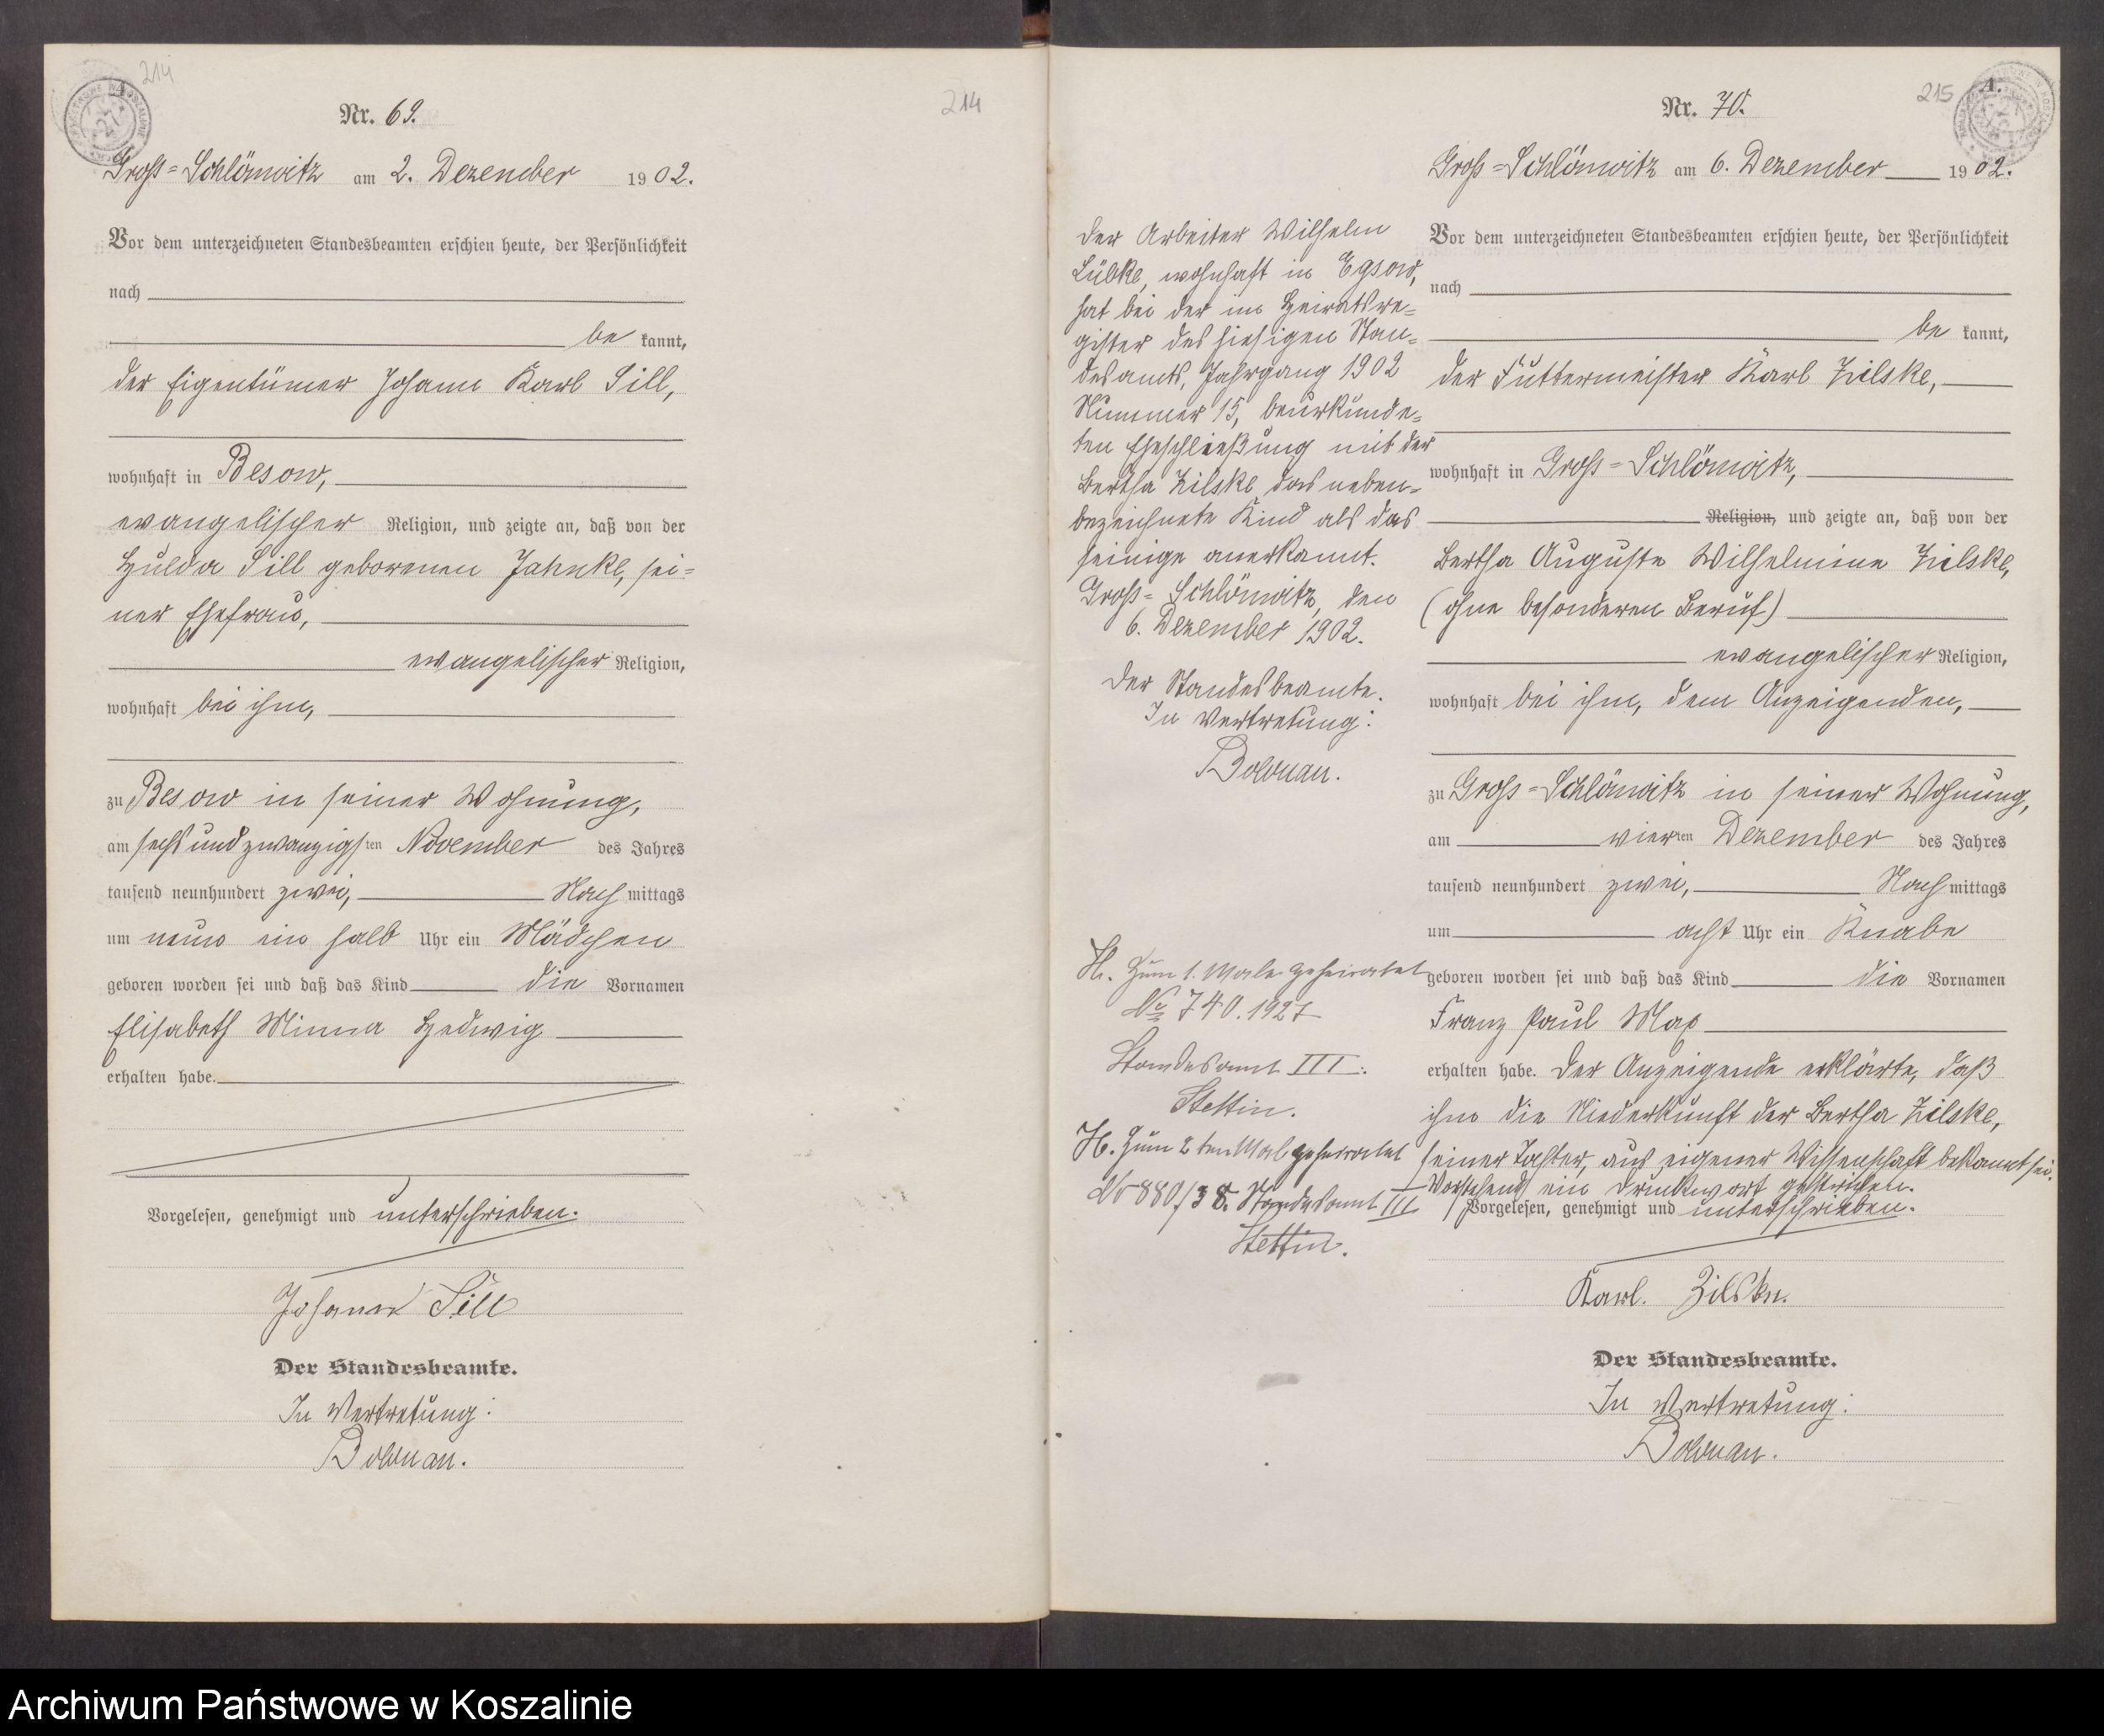 214
Nr. 69.
Groß=Schlönwitz am 2. Dezember 1902.
Vor dem unterzeichneten Standesbeamten erschien heute, der Persönlichkeit
nach
be kannt,
der Eigentümer Johann Karl Sill,
wohnhaft in Besow,
evangelischer Religion, und zeigte an, daß von der
Hulda Sill geborenen Jahnke, sei=
ner Ehefrau,
evangelischer Religion,
wohnhaft bei ihm,
zu Besow in seiner Wohnung,
am sechsundzwanzigsten November des Jahres
tausend neunhundert zwei, Nach mittags
um neun ein halb Uhr ein Mädchen
geboren worden sei und daß das Kind die Vornamen
Elisabeth Minna Hedwig
erhalten habe.
Vorgelesen, genehmigt und unterschrieben.
Johann Sill
Der Standesbeamte.
In Vertretung:
214
215
A.
Nr. 70.
Groß=Schlönwitz am 6. Dezember 1902.
Vor dem unterzeichneten Standesbeamten erschien heute, der Persönlichkeit
nach
be kannt,
der Futtermeister Karl Zilske,
wohnhaft in Groß=Schlönwitz,
Religion, und zeigte an, daß von der
Bertha Auguste Wilhelmine Zilske,
(ohne besonderen Beruf)
evangelischer Religion,
wohnhaft bei ihm, dem Anzeigenden,
zu Groß=Schlönwitz in seiner Wohnung,
am vierten Dezember des Jahres
tausend neunhundert zwei, Nach mittags
um acht Uhr ein Knabe
geboren worden sei und daß das Kind die Vornamen
Franz Paul Max
erhalten habe. Der Anzeigende erklärte, daß
ihm die Niederkunft der Bertha Zilske,
seiner Tochter, aus eigener Wissenschaft bekannt sei.
Vorstehend ein Druckwort gestrichen.
Vorgelesen, genehmigt und unterschrieben.
Karl. Zilske.
Der Standesbeamte.
In Vertretung:
Der Arbeiter Wilhelm
Lübke, wohnhaft in Egsow,
hat bei der im Heiratsre=
gister des hiesigen Stan=
desamts, Jahrgang 1902
Nummer 15, beurkunde=
ten Eheschließung mit der
Bertha Zilske das neben=
bezeichnete Kind als das
seinige anerkannt.
Groß=Schlönwitz, den
6. Dezember 1902.
Der Standesbeamte.
In Vertretung:
H. Zum 1. Male geheiratet
№ 740.1927
Standesamt III.
Stettin.
H. Zum 2ten Mal geheiratet
№ 880/38. Standesamt III
Stettin.
Archiwum Państwowe w Koszalinie